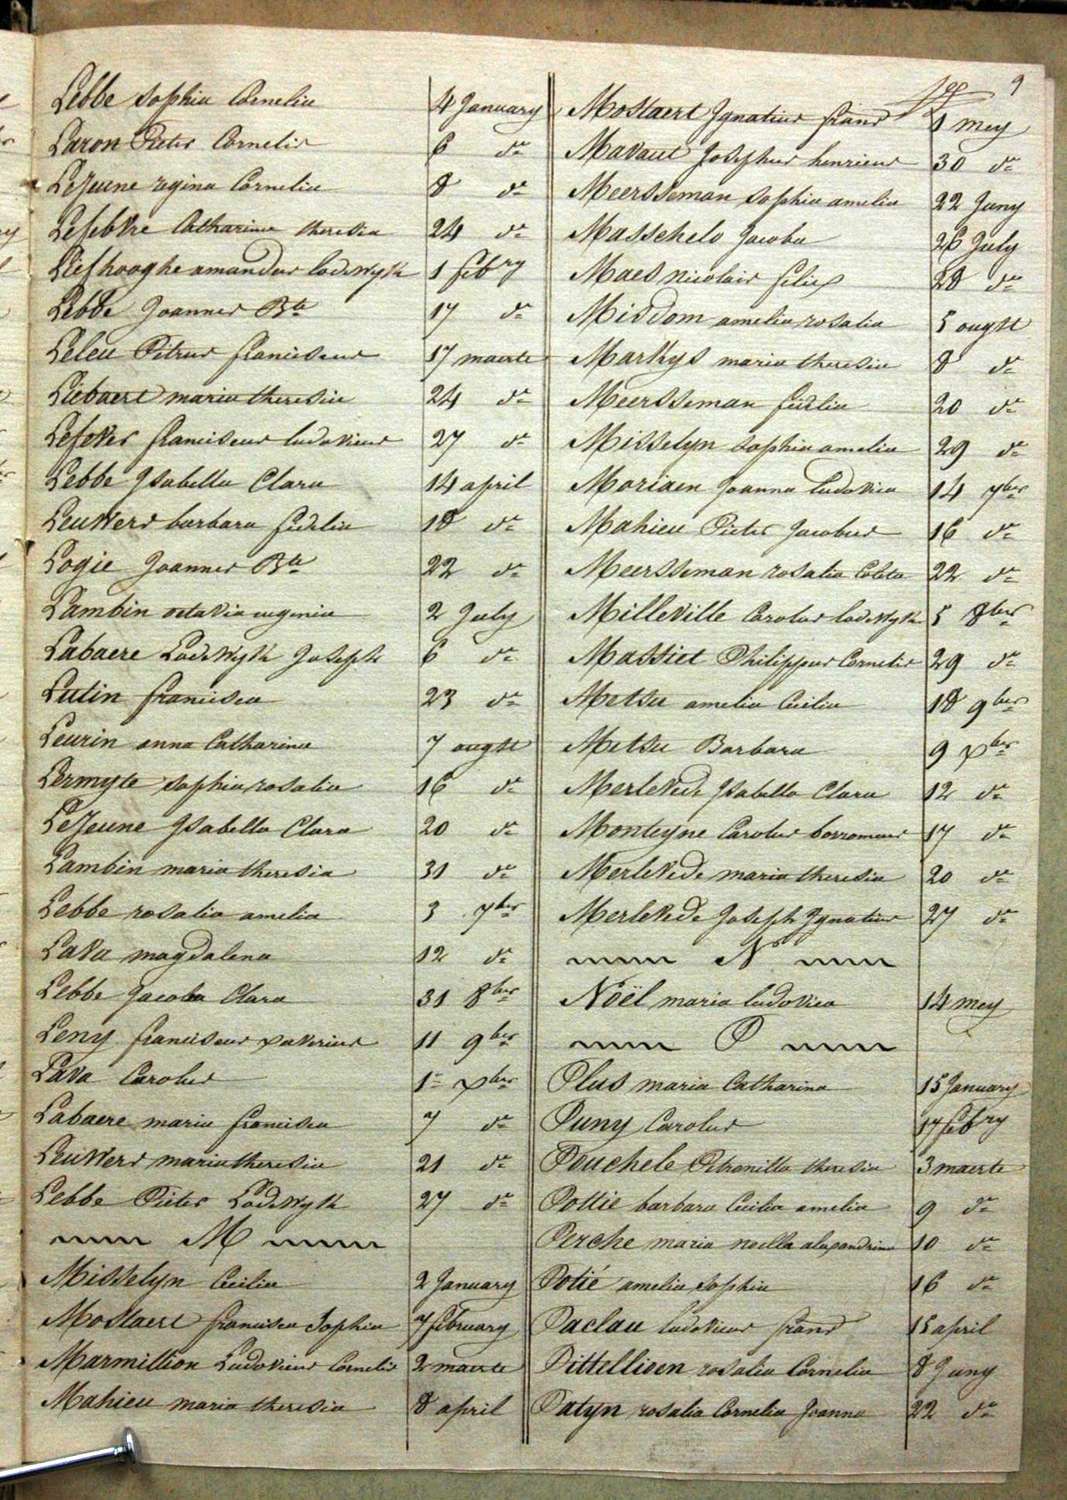 9
Lebbe Sophia Cornelia 4 January
Laron Pieter Cornelis 6 do
LeJeune regina Cornelia 8 do
Lefebvre Catharina theresia 24 do
Liefhooghe amandus lodewyk 1 febry
Lebbe Joannes Bte 17 do
Leleu Petrus franciscus 17 maerte
Liebaert maria theresia 24 do
Lefever franciscus ludovicus 27 do
Lebbe Ysabella Clara 14 april
Leuwers barbara fidelia 18 do
Logie Joannes Bte 22 do
Lambin octavia eugenia 2 July
Labaere Lodewyk Joseph 6 do
Lutin francisca 23 do
Leurin anna Catharina 7 ougst
Lermyte sophia rosalia 16 do
LeJeune Ysabella Clara 20 do
Lambin maria theresia 31 do
Lebbe rosalia amelia 3 7ber
Lava magdalena 12 do
Lebbe Jacoba Clara 31 8ber
Leny franciscus xaverius 11 9ber
Lava Carolus 1e xber
Labaere maria francisca 7 do
Leuwers maria theresia 21 do
Lebbe Pieter Lodewyk 27 do
M
Misselyn Cecilia 2 January
Mostaert francisca Sophia 7 february
Marmillion Ludovicus Cornelis 2 maerte
Mahieu maria theresia 8 april
Mostaert Ygnatius frans 1 mey
Mavaut Josephus henricus 30 do
Meersseman Sophia amelia 22 Juny
Masschelo Jacoba 26 July
Maes nicolais felix 28 do
Misdom amelia rosalia 5 ougst
Markys maria theresia 8 do
Meersseman fidelia 20 do
Misselyn sophia amelia 29 do
Moriaen Joanna ludovica 14 7ber
Mahieu Pieter Jacobus 16 do
Meersseman rosalia Coleta 22 do
Milleville Carolus lodewyk 5 8ber
Massiet Philippus Cornelis 29 do
Metsu amelia Cecilia 18 9ber
Metsu Barbara 9 xber
Merlevede Ysabella Clara 12 do
Monteyne Carolus borromeus 17 do
Merlevede maria theresia 20 do
Merlevede Joseph Ygnatius 27 do
N
Noël maria ludovica 14 mey
P
Plus maria Catharina 15 January
Puny Carolus 17 febry
Pouchele Petronilla theresia 3 maerte
Pottie barbara Cecilia amelia 9 do
Perche maria noella alexandrina 10 do
Potié amelia Sophia 16 do
Paclau ludovicus frans 15 april
Pittellioen rosalia Cornelia 8 Juny
Patyn rosalia Cornelia Joanna 22 do